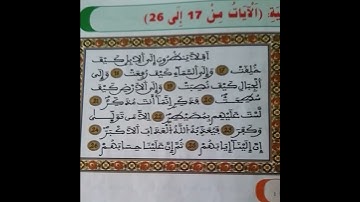 ـيَّةِ: (الْآيَاتُ مِنْ 17 إِلَى 26)
أَفَلَا يَنظُرُونَ إِلَى الْإِبِلِ كَيْفَ
خُلِقَتْ 17 وَإِلَى السَّمَاءِ كَيْفَ رُفِعَتْ 18 وَإِلَى
الْجِبَالِ كَيْفَ نُصِبَتْ 19 وَإِلَى الْأَرْضِ كَيْفَ
سُطِحَتْ 20 فَذَكِّرْ إِنَّمَا أَنتَ مُذَكِّرٌ 21
لَّسْتَ عَلَيْهِم بِمُصَيْطِرٍ 22 إِلَّا مَن تَوَلَّى
وَكَفَرَ 23 فَيُعَذِّبُهُ اللَّهُ الْعَذَابَ الْأَكْبَرَ 24
إِنَّ إِلَيْنَا إِيَابَهُمْ 25 ثُمَّ إِنَّ عَلَيْنَا حِسَابَهُم 26